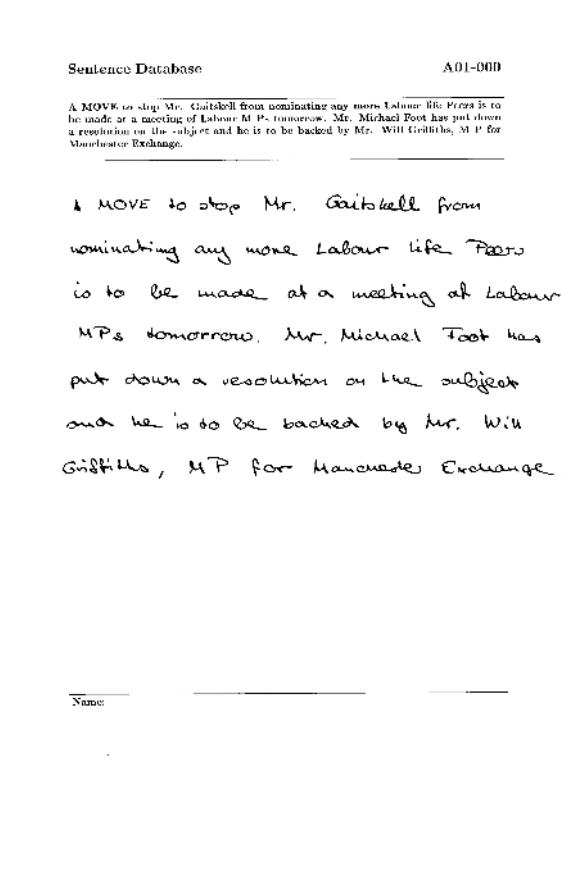 Sentence Database A01-000
A MOVE to stop Mr. Gaitskell from nominating any more Labour life Peers is to
be made at a meeting of Labour M Ps tomorrow. Mr. Michael Foot has put down
a resolution on the subject and he is to be backed by Mr. Will Griffiths, M P for
Manchester Exchange.
A MOVE to stop Mr. Gaitskell from
nominating any more Labour life Peers
is to be made at a meeting of Labour
MPs tomorrow. Mr. Michael Foot has
put down a resolution on the subject
and he is to be backed by Mr. Will
Griffiths, MP for Manchester Exchange
Name: